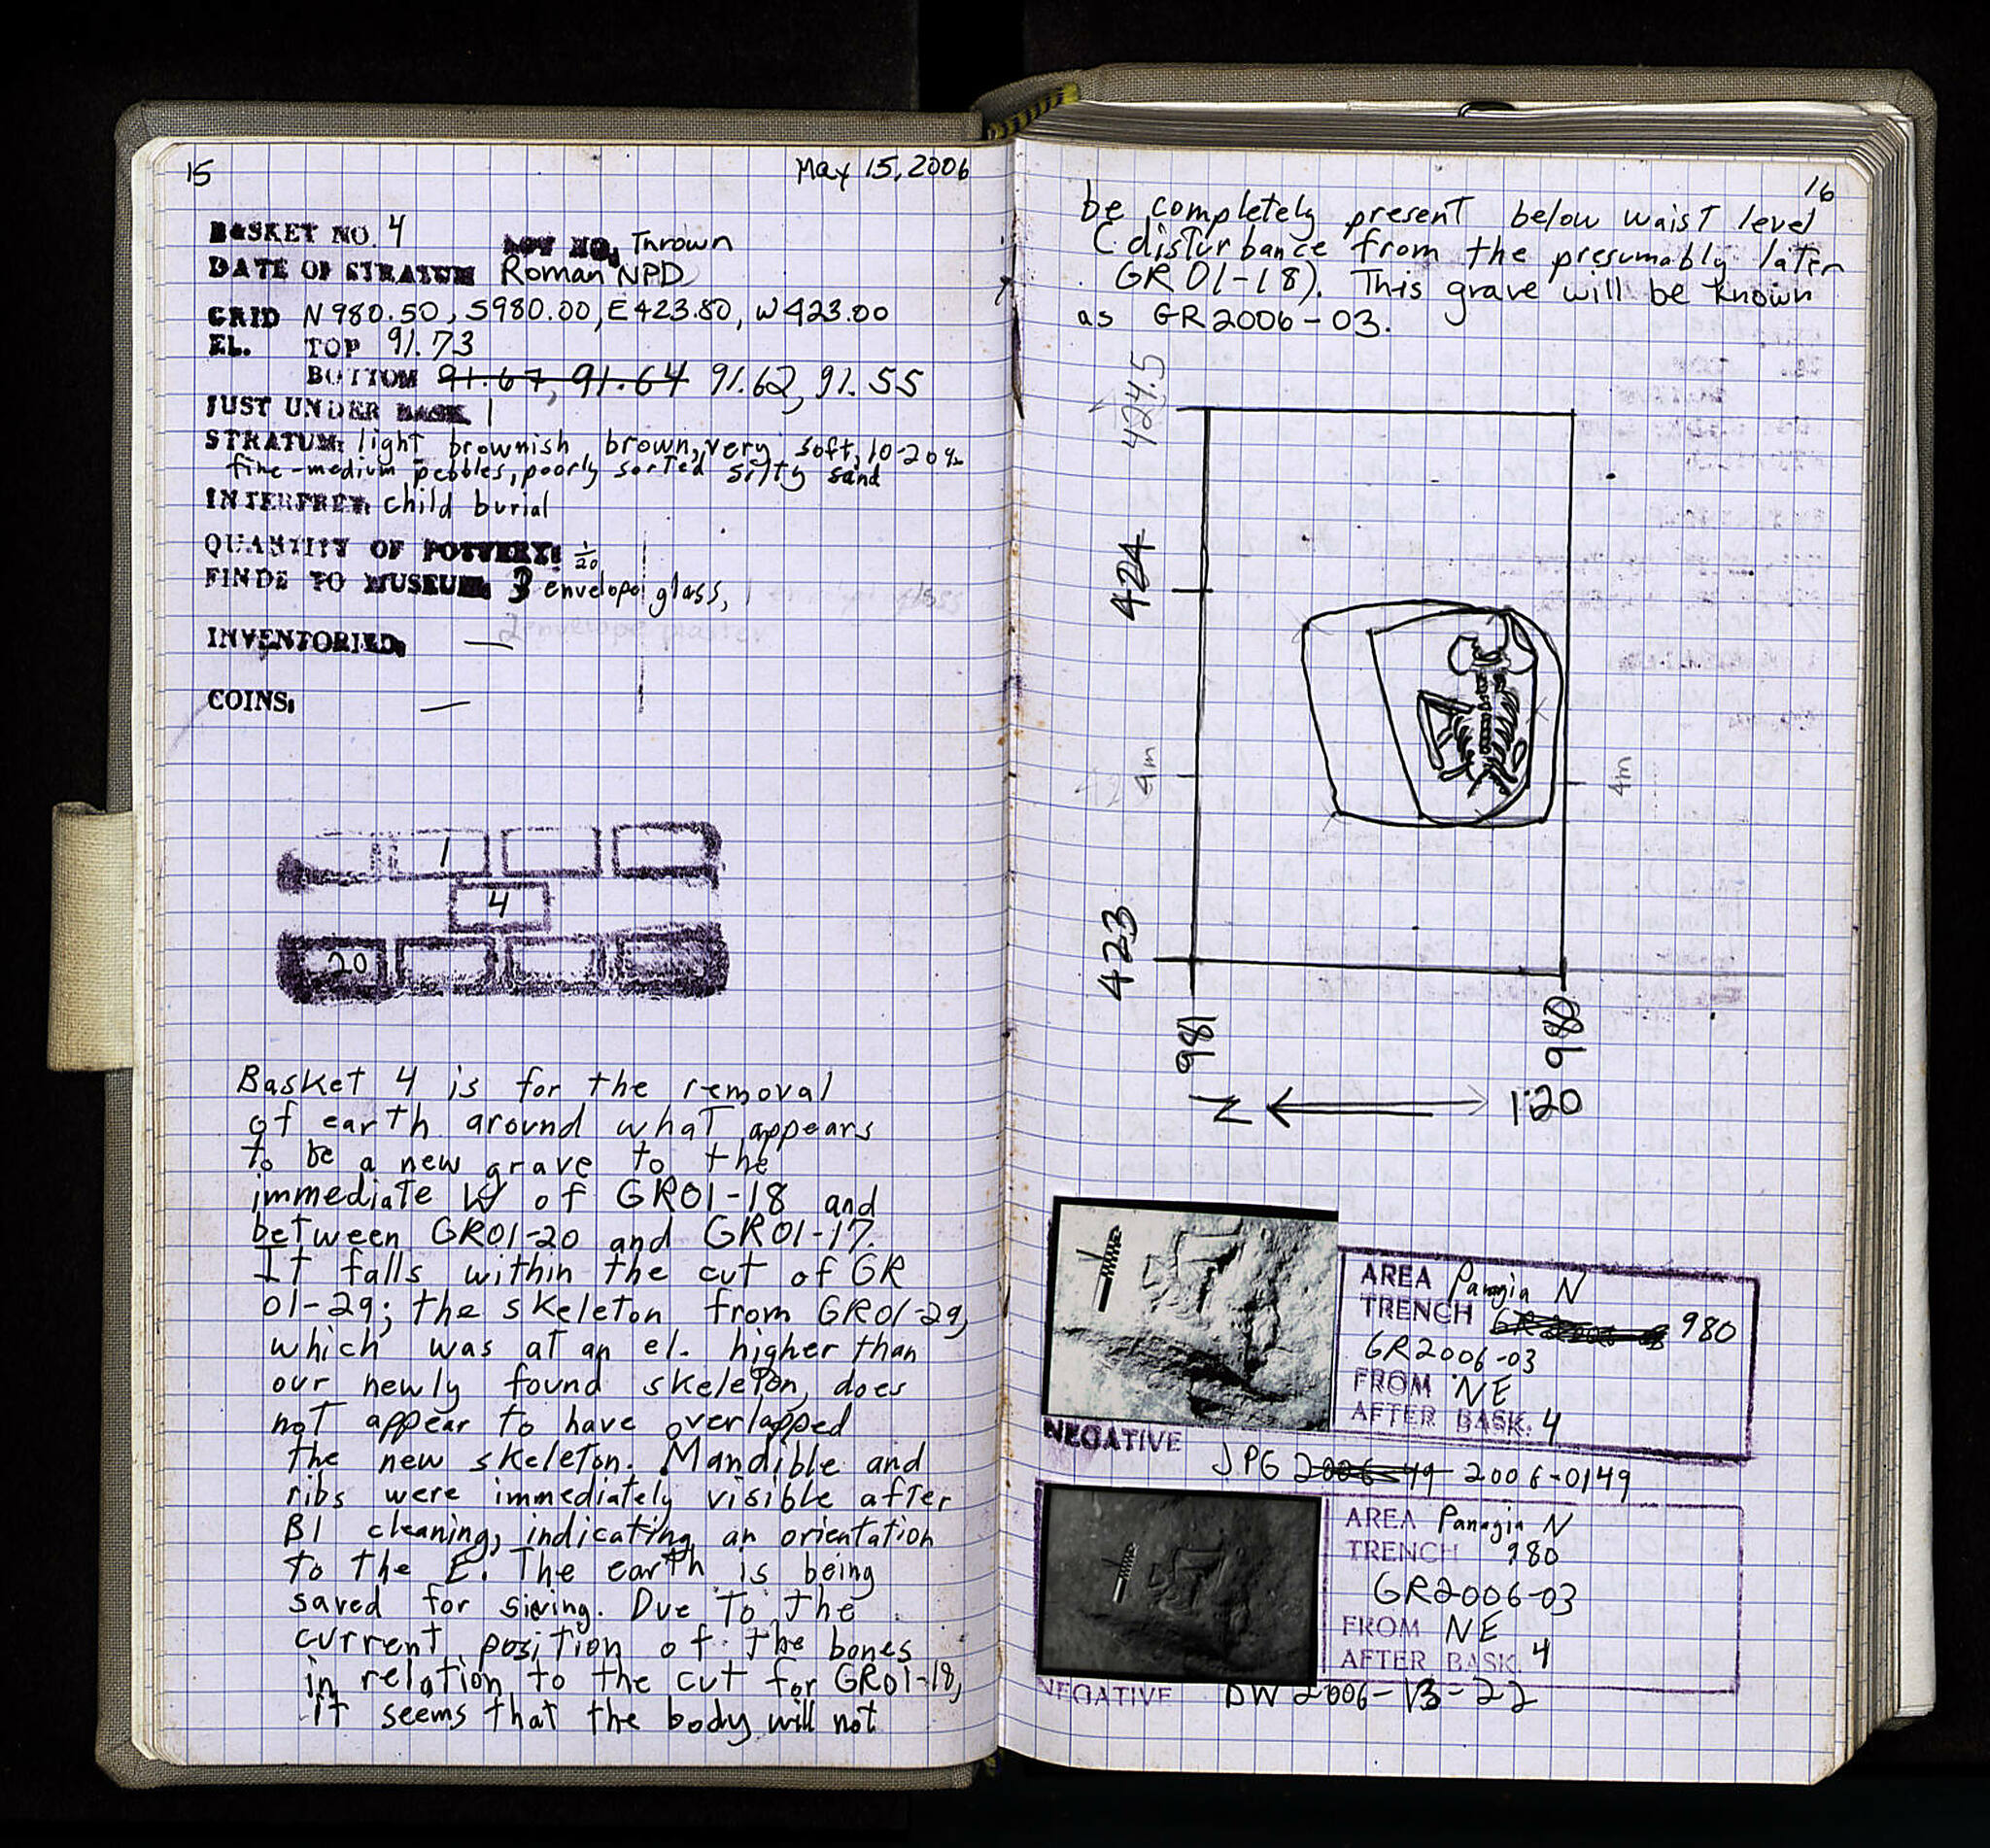 15
May 15, 2006
BASKET NO. 4 LOT NO. Thrown
DATE OF STRATUM Roman NPD
GRID N980.50, S980.00, E423.80, W423.00
EL. TOP 91.73
BOTTOM 91.67, 91.64 91.62, 91.55
JUST UNDER BASK. 1
STRATUM: light brownish brown, very soft, 10-20%
fine-medium pebbles, poorly sorted silty sand
INTERPRET. child burial
QUANTITY OF POTTERY: 1/20
FINDS TO MUSEUM: 3 envelope glass,
INVENTORIED. —
COINS. —
1
4
20
Basket 4 is for the removal
of earth around what appears
to be a new grave to the
immediate W of GR01-18 and
between GR01-20 and GR01-17.
It falls within the cut of GR
01-29; the skeleton from GR01-29,
which was at an el. higher than
our newly found skeleton, does
not appear to have overlapped
the new skeleton. Mandible and
ribs were immediately visible after
B1 cleaning, indicating an orientation
to the E. The earth is being
saved for sieving. Due to the
current position of the bones
in relation to the cut for GR01-18,
it seems that the body will not
16
be completely present below waist level
(disturbance from the presumably later
GR01-18). This grave will be known
as GR2006-03.
424.5
424
4m
4m
423
981
980
N
1:20
AREA Panagia N
TRENCH 980
GR2006-03
FROM NE
AFTER BASK. 4
NEGATIVE
JPG 2006-0149
AREA Panagia N
TRENCH 980
GR2006-03
FROM NE
AFTER BASK. 4
NEGATIVE DW 2006-13-22